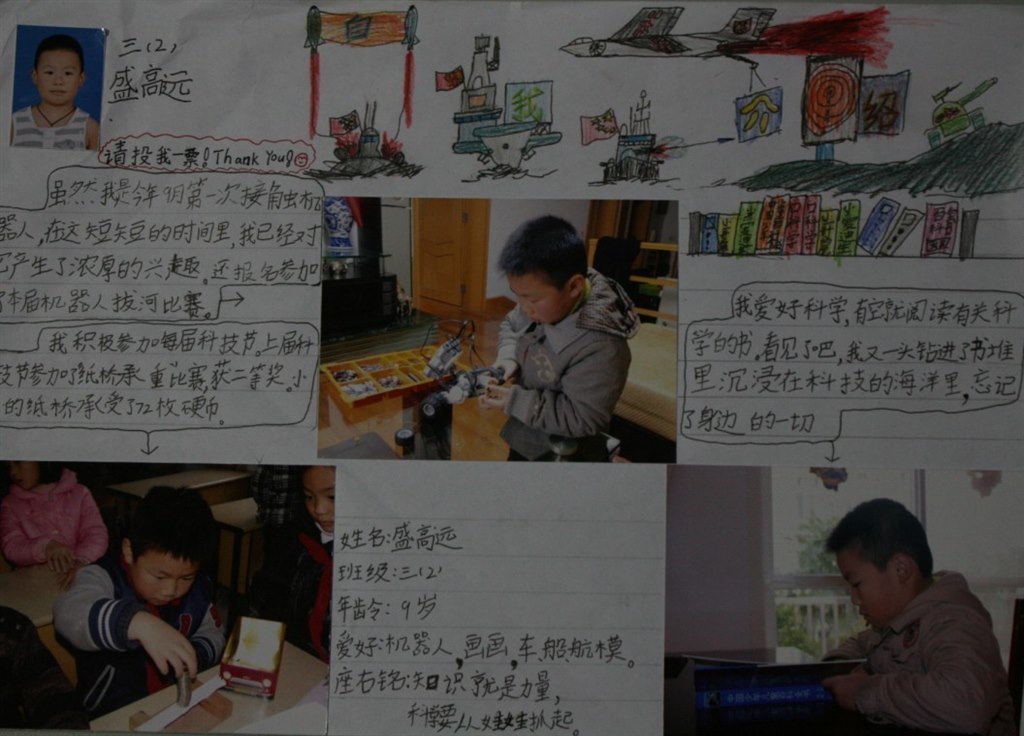 自我介绍
三(2)
盛高远
请投我一票!Thank You!
虽然我是今年9月第一次接触机
器人,在这短短的时间里,我已经对
它产生了浓厚的兴趣。还报名参加
了本届机器人拔河比赛。
我积极参加每届科技节。上届科
技节参加了纸桥承重比赛,获二等奖。小
的纸桥承受了72枚硬币。
我爱好科学,有空就阅读有关科
学的书。看见了吧,我又一头钻进了书堆
里沉浸在科技的海洋里,忘记
了身边的一切
姓名:盛高远
班级:三(2)
年龄:9岁
爱好:机器人,画画,车船航模。
座右铭:知识就是力量,
科学要从娃娃抓起。